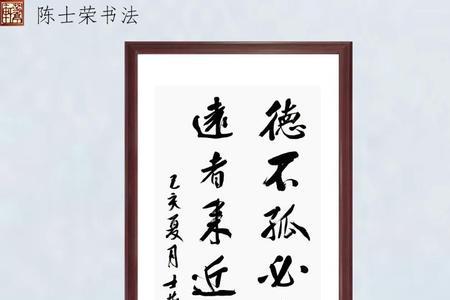 陈士荣书法
德不孤必
远者来近
乙亥夏月士